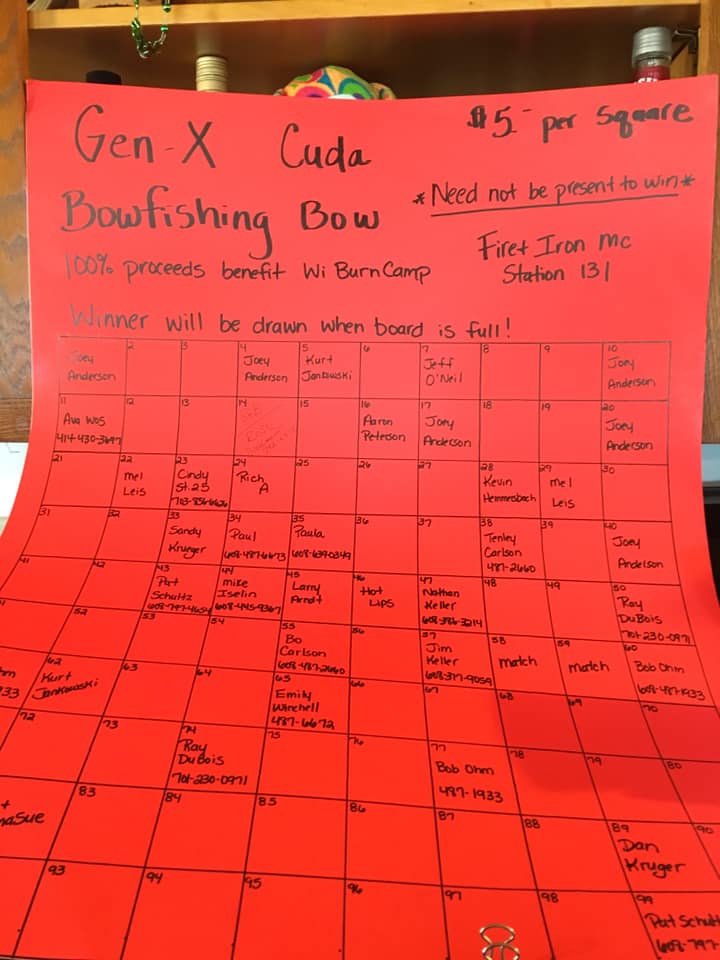 Gen-X Cuda
$5- per square
Bowfishing Bow
*Need not be present to win*
100% proceeds benefit Wi Burn Camp
Firet Iron mc
Station 131
Winner will be drawn when board is full!
Joey
Anderson
2
3
4
Joey
Anderson
5
Kurt
Jankowski
6
7
Jeff
O'Neil
8
9
10
Joey
Anderson
11
Ava Wos
414-430-3697
12
13
14
15
16
Aaron
Peterson
17
Joey
Anderson
18
19
20
Joey
Anderson
21
22
mel
Leis
23
Cindy
St. 25
24
Rich
A
25
26
27
28
Kevin
Hemmersbach
29
mel
Leis
30
31
32
33
Sandy
Krueger
34
Paul
608-487-6673
35
Paula
608-639-0349
36
37
38
Tenley
Carlson
487-2660
39
40
Joey
Anderson
41
42
43
Pat
Schultz
608-797-4654
44
mike
Iselin
608-445-9367
45
Larry
Arndt
46
Hot
Lips
47
Nathan
Keller
608-386-3214
48
49
50
Ray
DuBois
701-230-0971
52
53
54
55
Bo
Carlson
608-487-2660
56
57
Jim
Keller
608-317-9059
58
match
59
match
60
Bob Ohm
608-487-1933
hm
933
62
Kurt
Jankowski
63
64
65
Emily
Winchell
487-6672
66
67
68
69
70
72
73
74
Ray
DuBois
701-230-0971
75
76
77
Bob Ohm
487-1933
78
79
80
+
naSue
83
84
85
86
87
88
89
Dan
Kruger
90
93
94
95
96
97
98
99
Pat Schult
608-797-